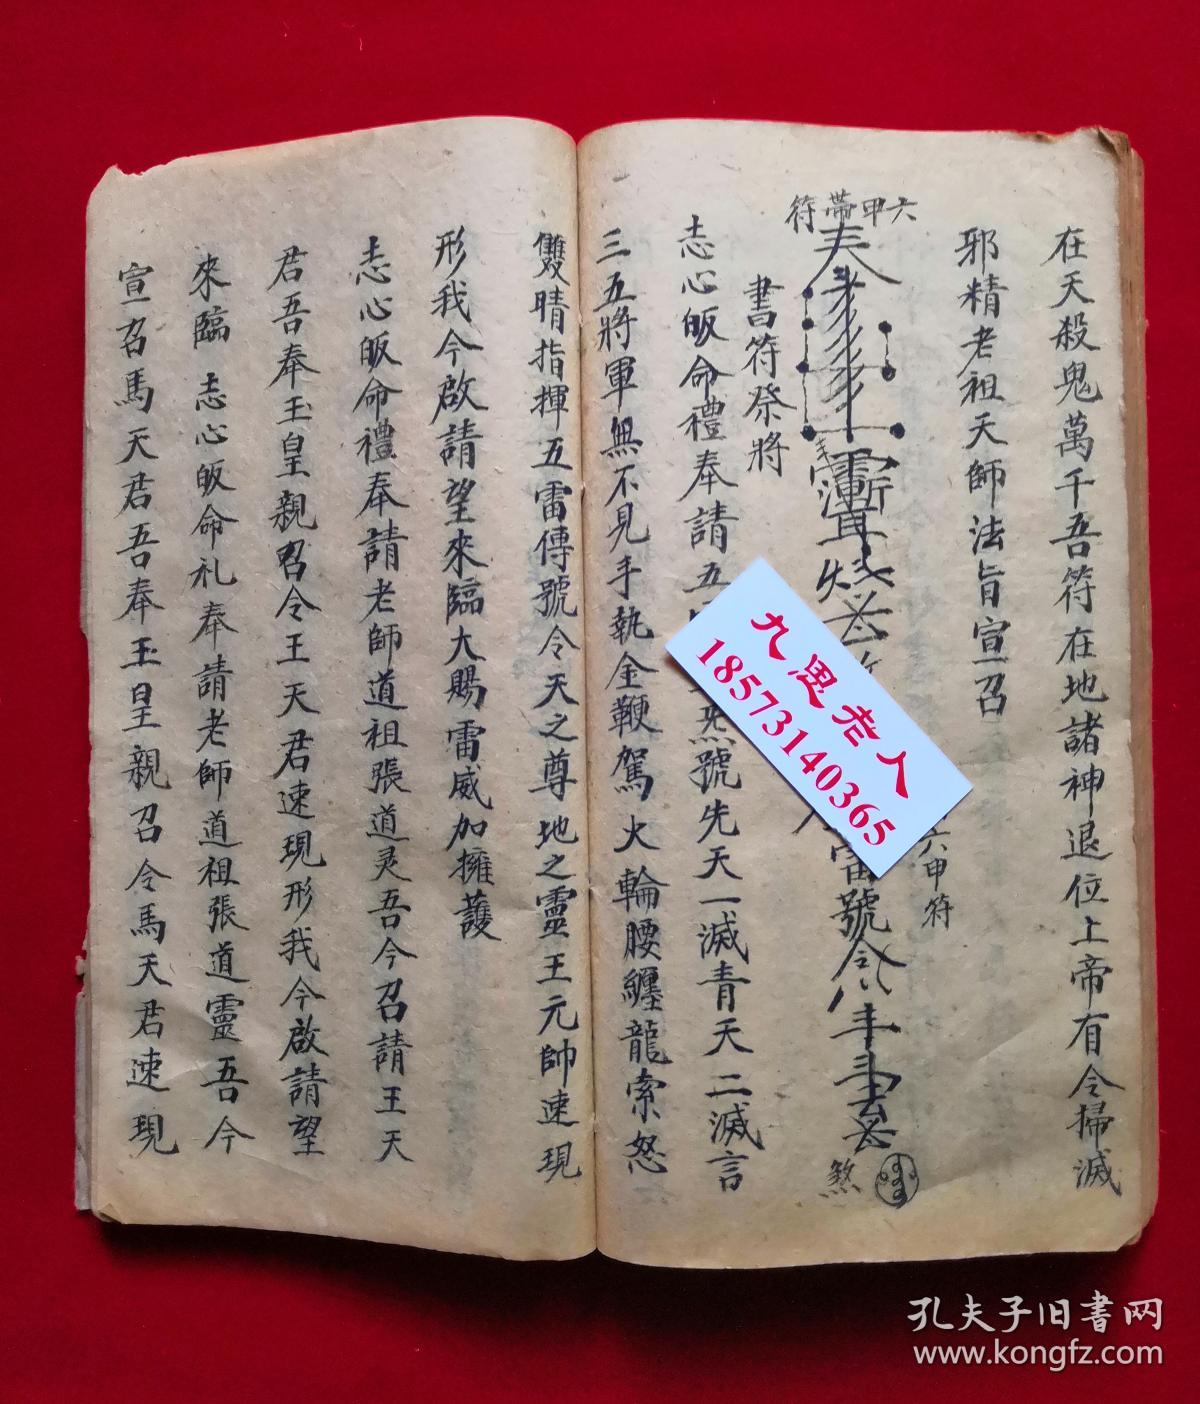 在天殺鬼萬千吾符在地諸神退位上帝有令掃滅
邪精老祖天師法旨宣召
六甲符
六甲帶符
雷號令
煞
書符祭將
志心皈命禮奉請五
炁號先天一滅青天二滅言
三五將軍無不見手執金鞭駕火輪腰纏龍索怒
雙晴指揮五雷傳號令天之尊地之靈王元帥速現
形我今啟請望來臨大賜雷威加擁護
志心皈命禮奉請老師道祖張道灵吾今召請王天
君吾奉玉皇親召令王天君速現形我今啟請望
來臨 志心皈命礼奉請老師道祖張道靈吾今
宣召馬天君吾奉玉皇親召令馬天君速現
九思老人
18573140365
孔夫子旧书网
www.kongfz.com